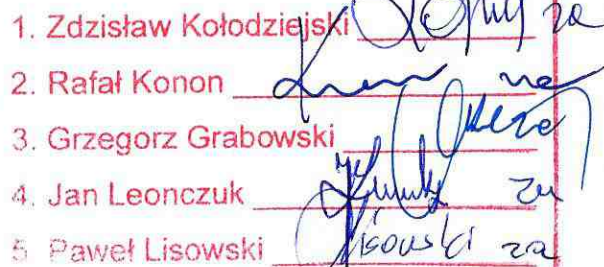 1. Zdzisław Kołodziejski za
2. Rafał Konon
3. Grzegorz Grabowski
4. Jan Leonczuk za
5. Paweł Lisowski Lisowski za